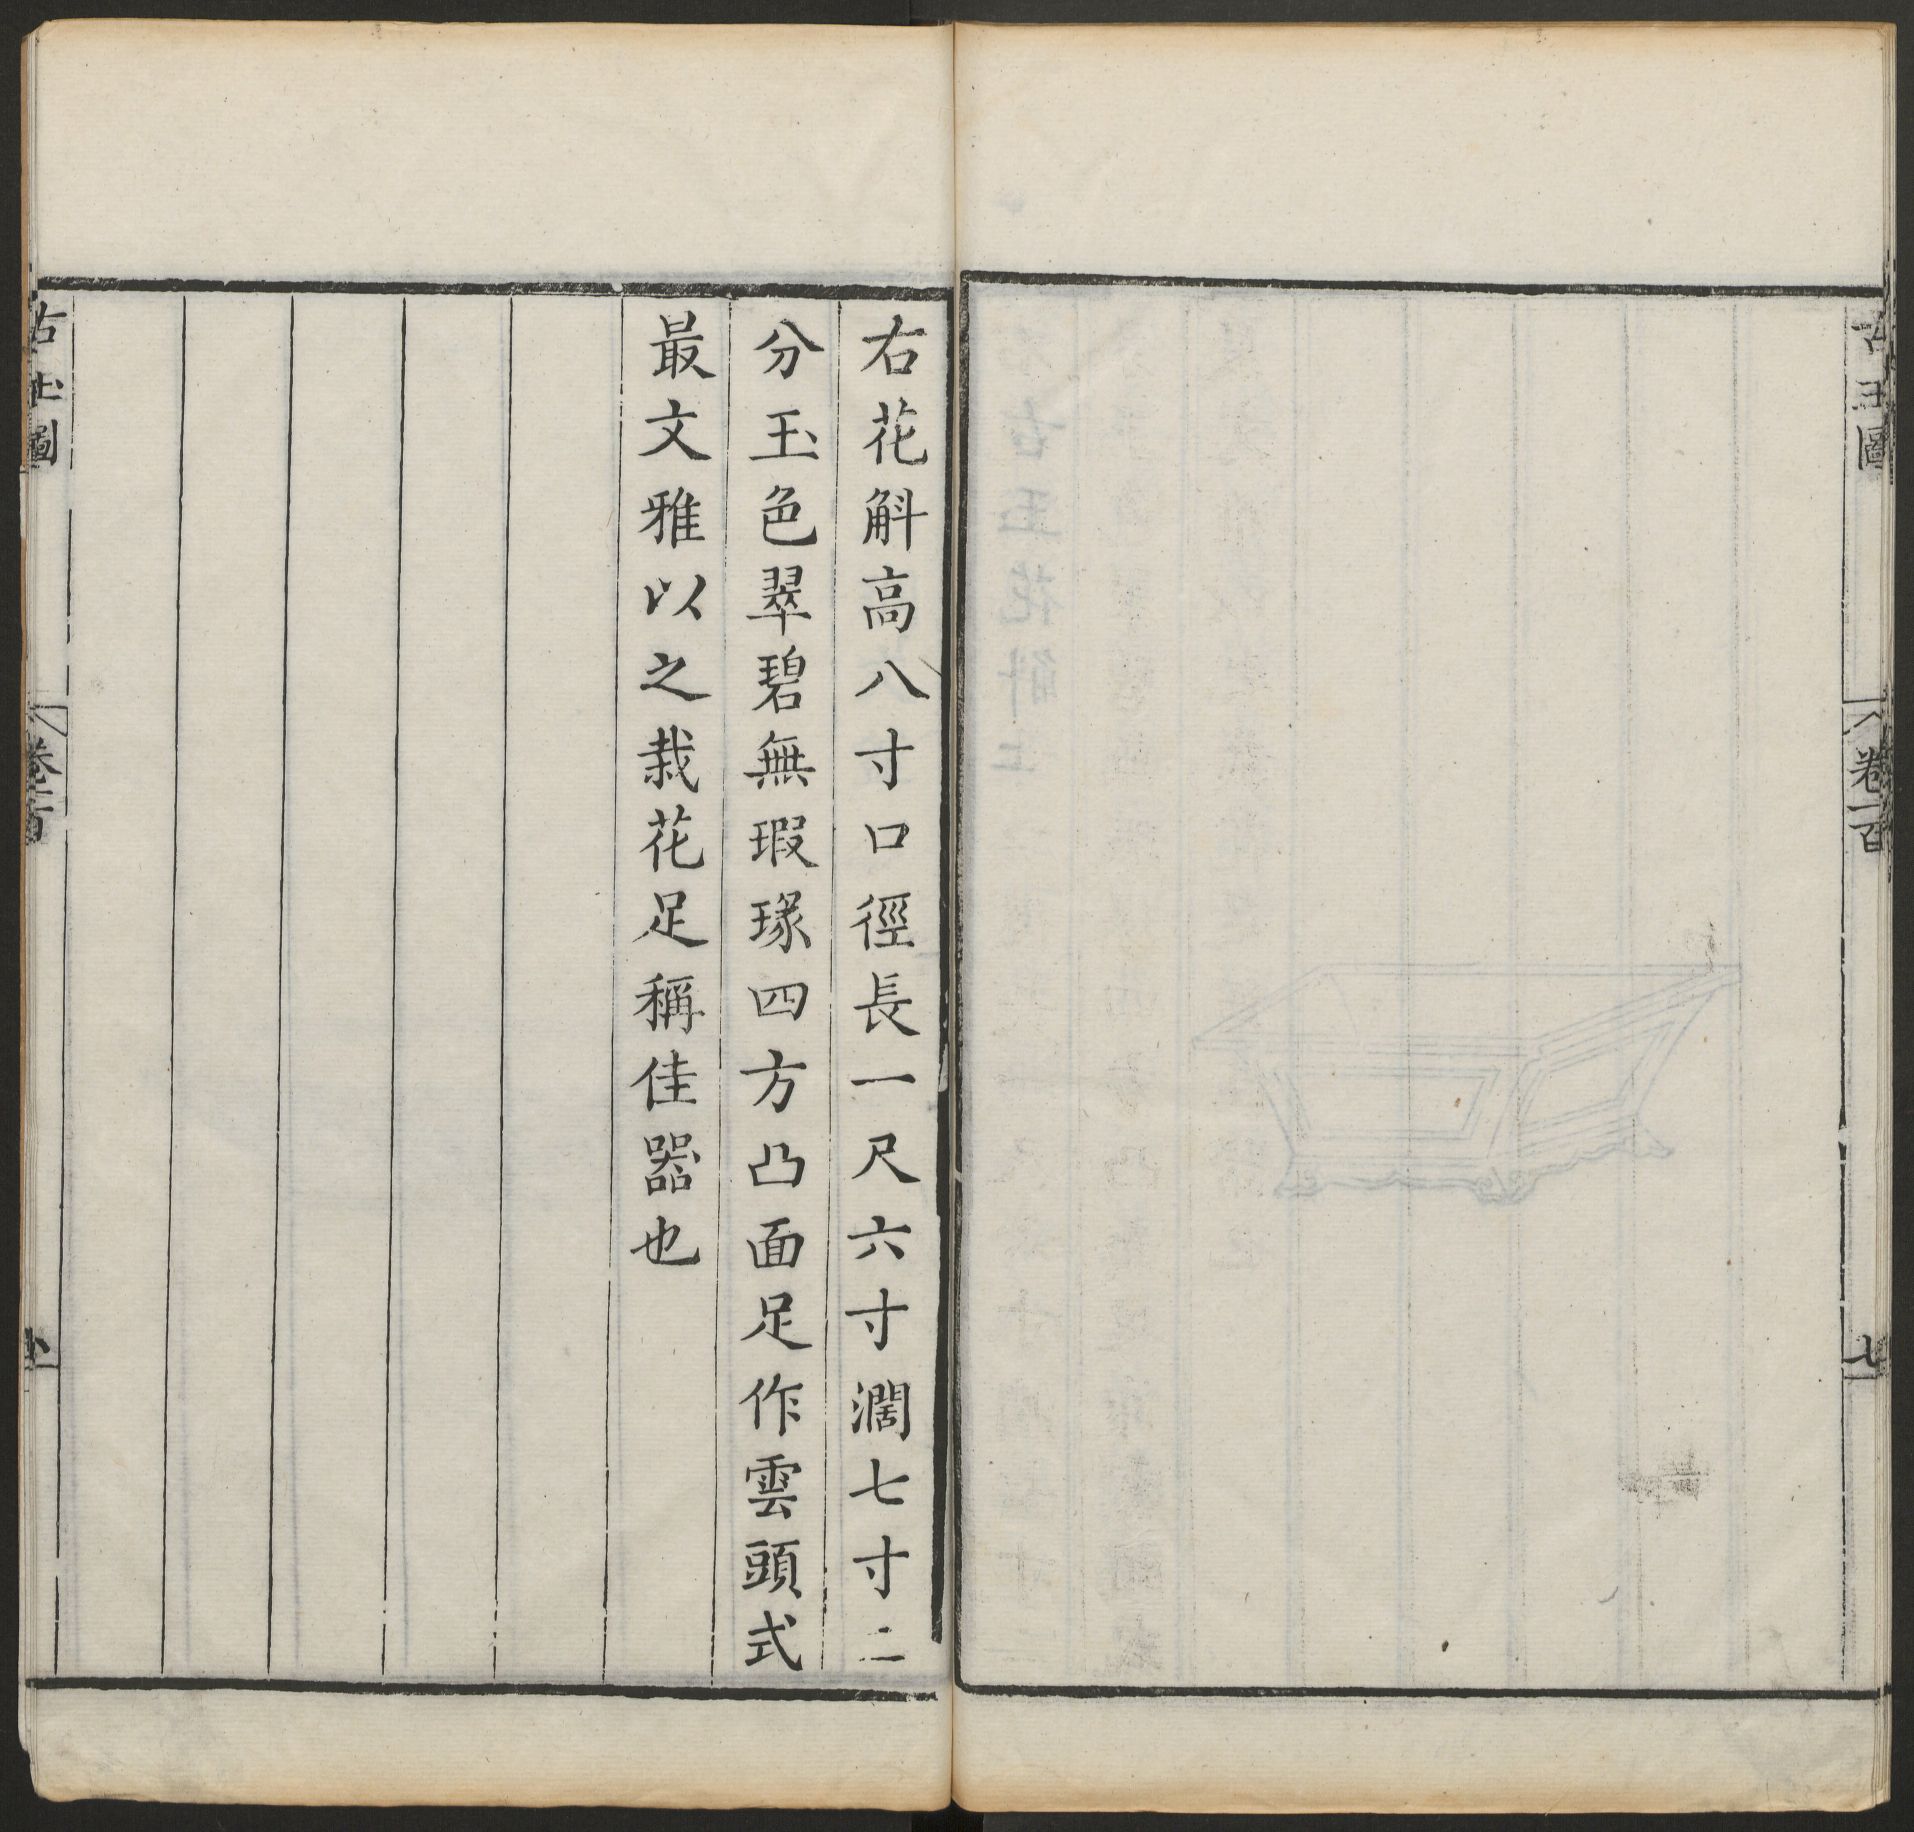 古玉圖
卷一百
七
右花斛高八寸口徑長一尺六寸濶七寸二
分玉色翠碧無瑕瑑四方凸面足作雲頭式
最文雅以之栽花足稱佳器也
古玉圖
卷一百